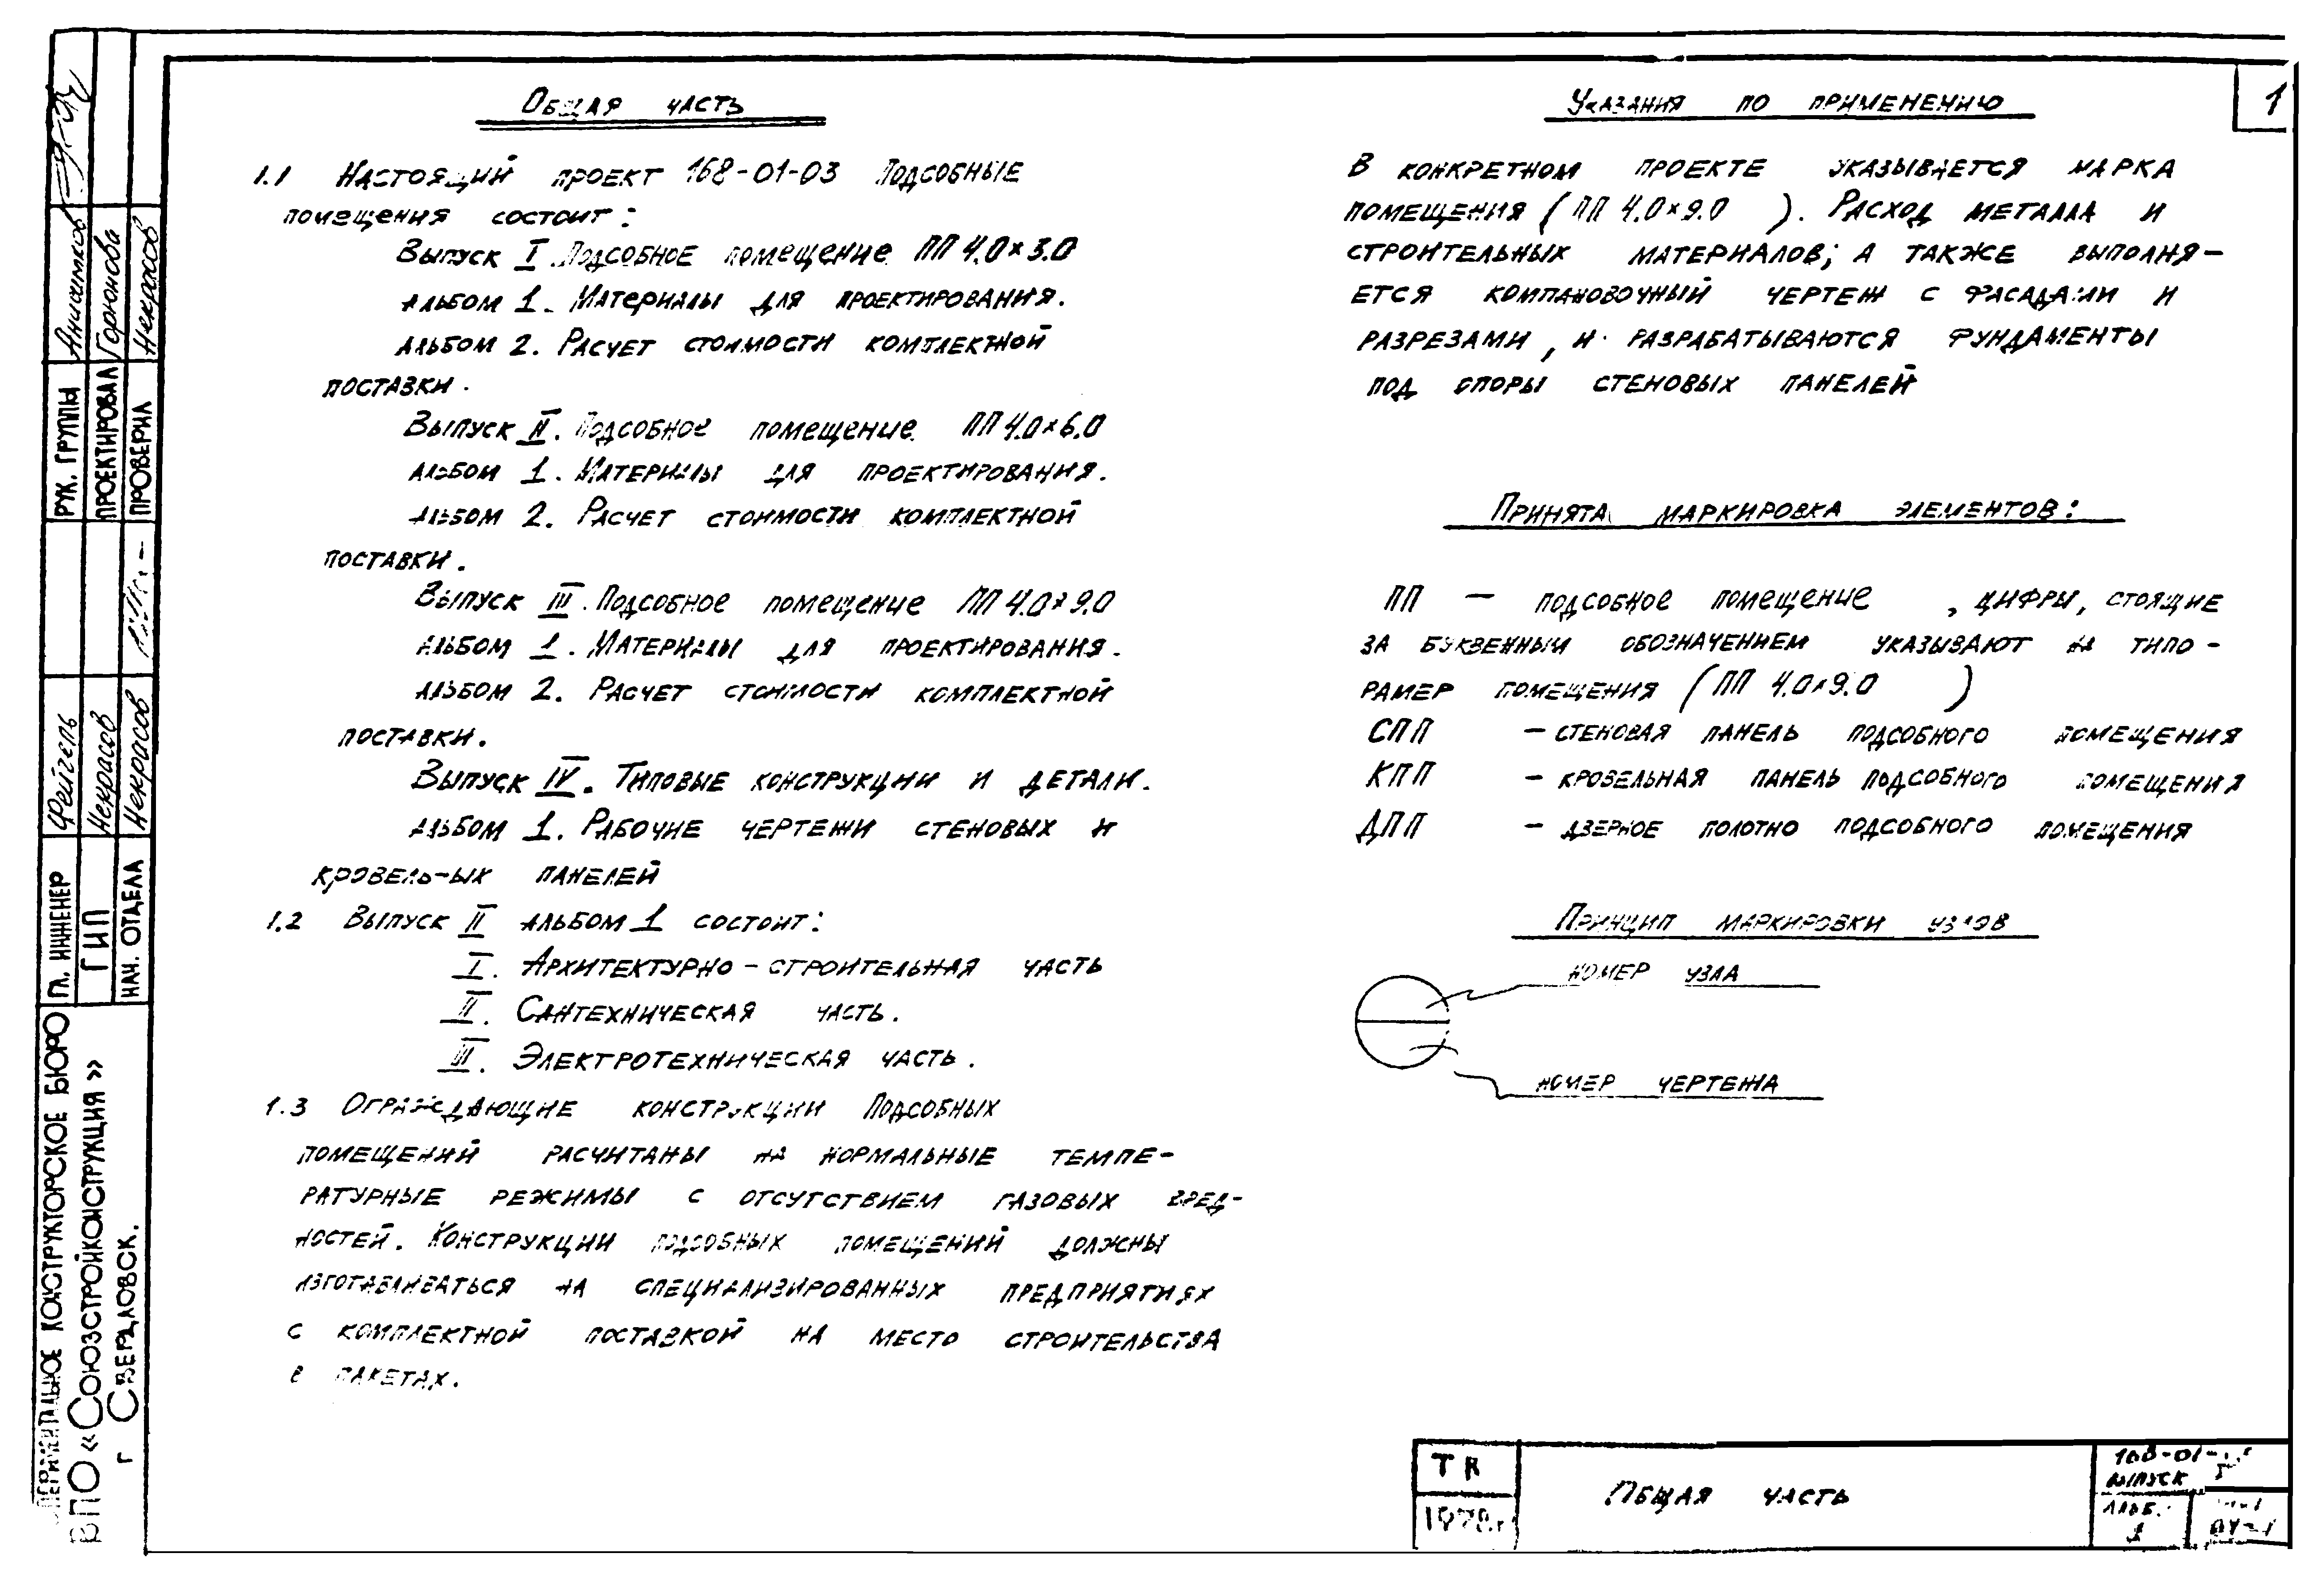 Общая часть
1.1 Настоящий проект 168-01-03 Подсобные
помещения состоит:
Выпуск I. Подсобное помещение ПП 4.0×3.0
Альбом 1. Материалы для проектирования.
Альбом 2. Расчет стоимости комплектной
поставки.
Выпуск II. Подсобное помещение ПП 4.0×6.0
Альбом 1. Материалы для проектирования.
Альбом 2. Расчет стоимости комплектной
поставки.
Выпуск III. Подсобное помещение ПП 4.0×9.0
Альбом 1. Материалы для проектирования.
Альбом 2. Расчет стоимости комплектной
поставки.
Выпуск IV. Типовые конструкции и детали.
Альбом 1. Рабочие чертежи стеновых и
кровельных панелей
1.2 Выпуск II альбом 1 состоит:
I. Архитектурно-строительная часть
II. Сантехническая часть.
III. Электротехническая часть.
1.3 Ограждающие конструкции Подсобных
помещений расчитаны на нормальные темпе-
ратурные режимы с отсутствием газовых вред-
ностей. Конструкции подсобных помещений должны
изготавливаться на специализированных предприятиях
с комплектной поставкой на место строительства
в пакетах.
Указания по применению
1
В конкретном проекте указывается марка
помещения (ПП 4.0×9.0 ). Расход металла и
строительных материалов; а также выполня-
ется компановочный чертеж с фасадами и
разрезами, и разрабатываются фундаменты
под опоры стеновых панелей
Принята маркировка элементов:
ПП — подсобное помещение , цифры, стоящие
за буквенным обозначением указывают на типо-
рамер помещения (ПП 4.0×9.0 )
СПП – стеновая панель подсобного помещения
КПП – кровельная панель подсобного помещения
ДПП – дверное полотно подсобного помещения
Принцип маркировки узлов
номер узла
номер чертежа
Рук. группы Анишиков
Проектировал Горюнова
Проверил Некрасов
Гл. инженер Фейгель
ГИП Некрасов
Нач. отдела Некрасов
конструкторское бюро
ВПО «Союзстройконструкция»
г Свердловск.
ТК
1978г
Общая часть
Выпуск
Альб.
1